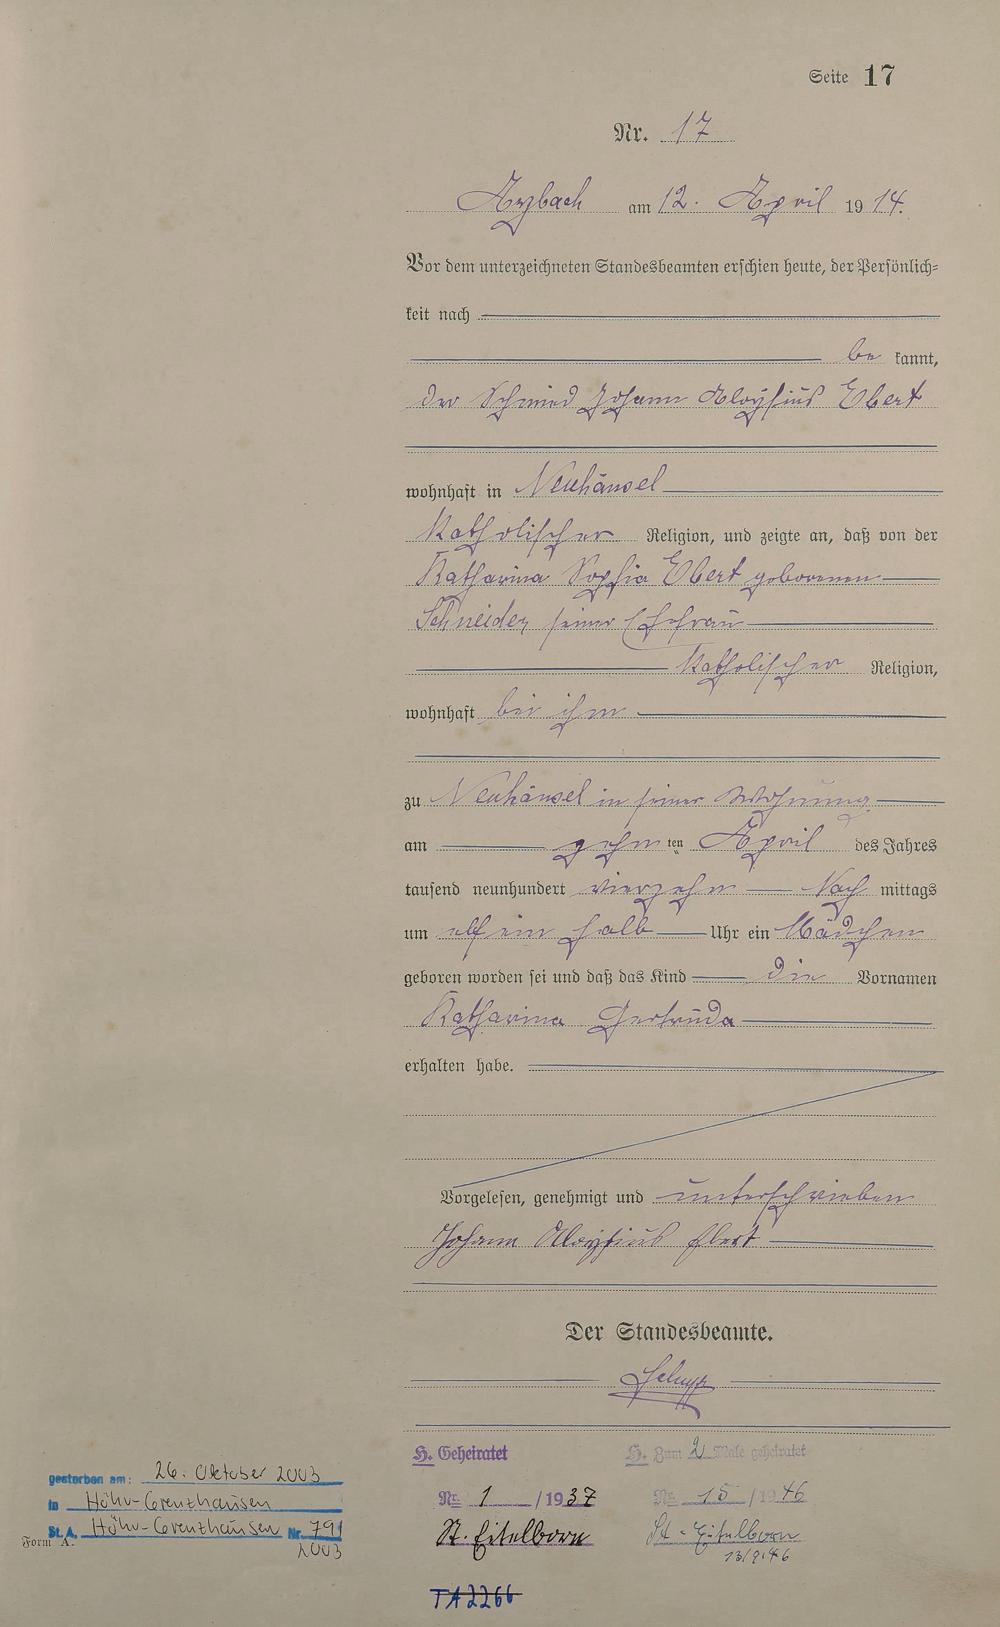 Seite 17
Nr. 17
Arzbach am 12. April 1914.
Vor dem unterzeichneten Standesbeamten erschien heute, der Persönlich=
keit nach
be kannt,
der Schmied Johann Aloysius Ebert
wohnhaft in Neuhäusel
katholischer Religion, und zeigte an, daß von der
Katharina Sophia Ebert geborenen
Schneider seiner Ehefrau
katholischer Religion,
wohnhaft bei ihm
zu Neuhäusel in seiner Wohnung
am zehn ten April des Jahres
tausend neunhundert vierzehn Nach mittags
um elf ein halb Uhr ein Mädchen
geboren worden sei und daß das Kind die Vornamen
Katharina Gertruda
erhalten habe.
Vorgelesen, genehmigt und unterschrieben
Johann Aloysius Ebert
Der Standesbeamte.
H. Geheiratet
Nr. 1 /1937
St. Eitelborn
H. Zum 2 Male geheiratet
Nr. 15 /1946
St. Eitelborn
13/9.46
gestorben am: 26. Oktober 2003
in Höhr-Grenzhausen
St. A. Höhr-Grenzhausen Nr. 791
2003
Form A.
TA2266